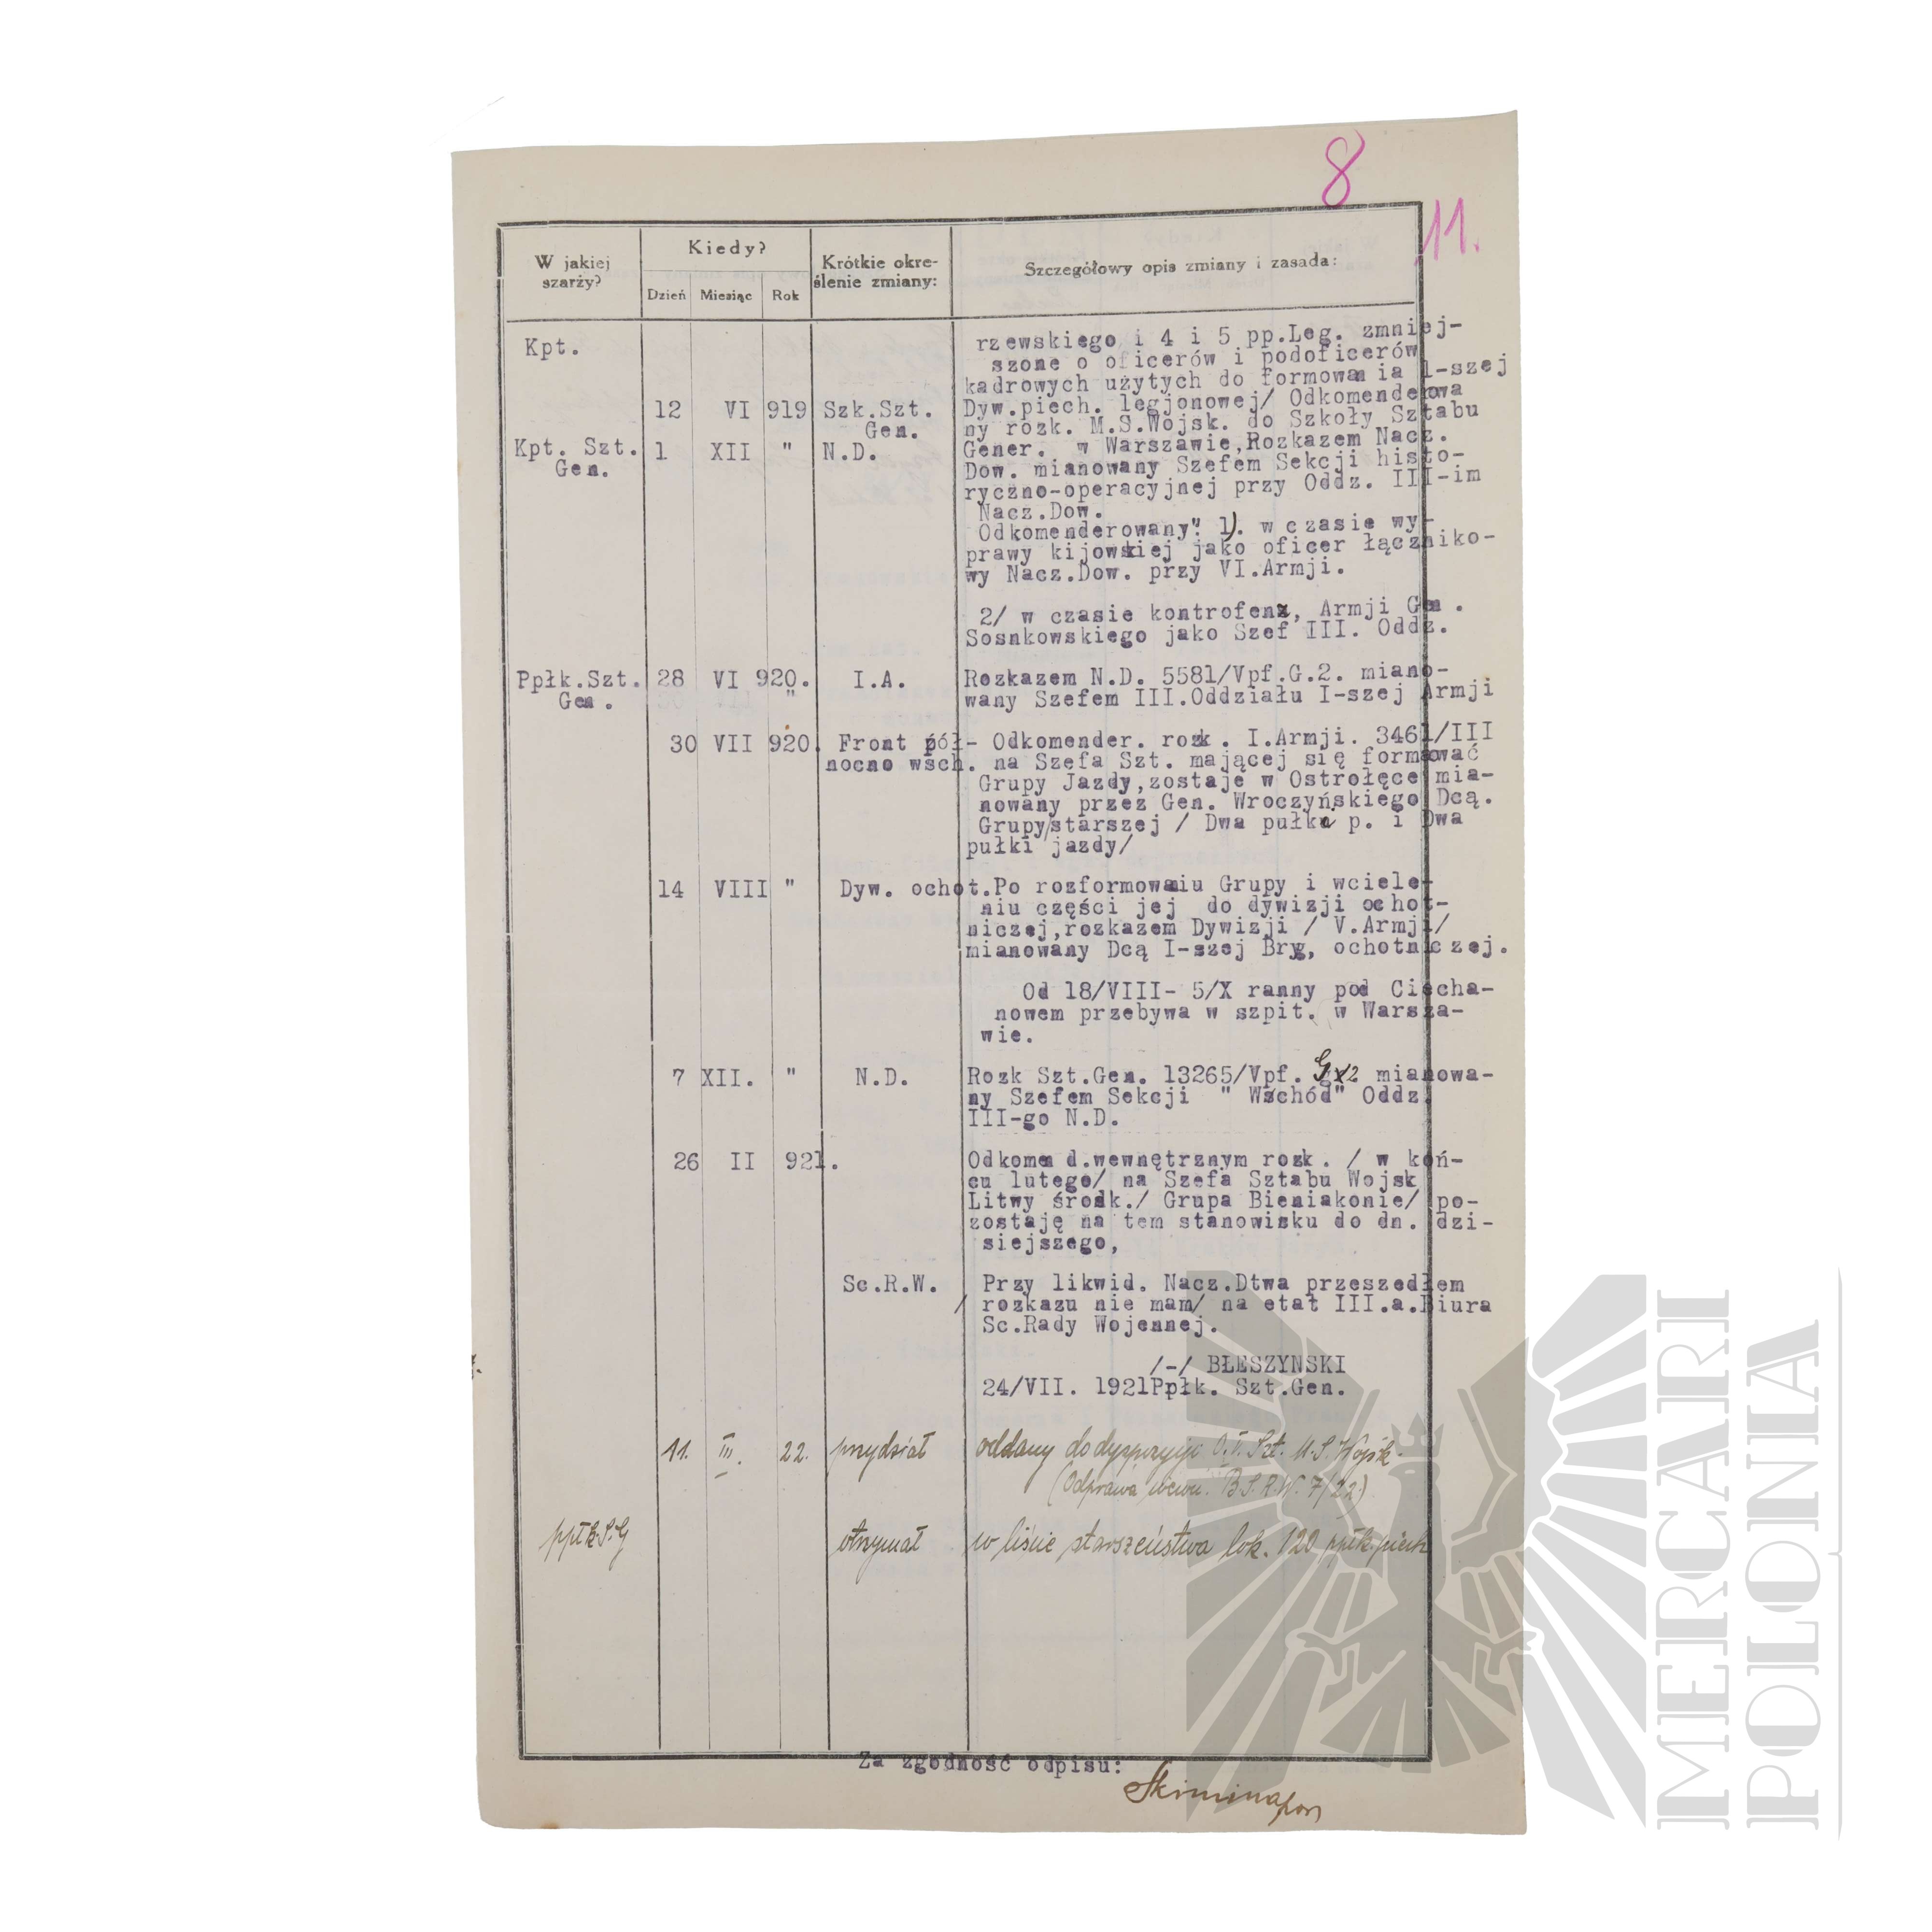 8
11.
W jakiej
szarży?
Kiedy?
Dzień Miesiąc Rok
Krótkie okre-
ślenie zmiany:
Szczegółowy opis zmiany i zasada:
Kpt. rzewskiego i 4 i 5 pp.Leg. zmniej-
szone o oficerów i podoficerów
kadrowych użytych do formowania 1-szej
12 VI 919 Szk.Szt. Dyw.piech. legjonowej/ Odkomenderowa
Gen. ny rozk. M.S.Wojsk. do Szkoły Sztabu
Kpt. Szt. 1 XII " N.D. Gener. w Warszawie,Rozkazem Nacz.
Gen. Dow. mianowany Szefem Sekcji histo-
ryczno-operacyjnej przy Oddz. III-im
Nacz.Dow.
Odkomenderowany" 1). w czasie wy-
prawy kijowskiej jako oficer łączniko-
wy Nacz.Dow. przy VI.Armji.
2/ w czasie kontrofenz, Armji Gen.
Sosnkowskiego jako Szef III. Oddz.
Ppłk.Szt. 28 VI 920. I.A. Rozkazem N.D. 5581/Vpf.G.2. miano-
Gen. " wany Szefem III.Oddziału I-szej Armji
30 VII 920. Front pół- Odkomender. rozk. I.Armji. 3461/III
nocno wsch. na Szefa Szt. mającej się formować
Grupy Jazdy,zostaje w Ostrołęce mia-
nowany przez Gen. Wroczyńskiego Dcą.
Grupy/starszej / Dwa pułki p. i Dwa
pułki jazdy/
14 VIII " Dyw. ochot. Po rozformowaniu Grupy i wciele-
niu części jej do dywizji ochot-
niczej,rozkazem Dywizji / V.Armji/
mianowany Dcą I-szej Bryg, ochotniczej.
Od 18/VIII- 5/X ranny pod Ciecha-
nowem przebywa w szpit. w Warsza-
wie.
7 XII. " N.D. Rozk Szt.Gen. 13265/Vpf. G x2 mianowa-
ny Szefem Sekcji " Wschód" Oddz.
III-go N.D.
26 II 921. Odkomen d.wewnętrznym rozk. / w koń-
cu lutego/ na Szefa Sztabu Wojsk
Litwy środk./ Grupa Bieniakonie/ po-
zostaję na tem stanowisku do dn. dzi-
siejszego,
Sc.R.W. Przy likwid. Nacz.Dtwa przeszedłem
/ rozkazu nie mam/ na etat III.a.Biura
Sc.Rady Wojennej.
/-/ BŁESZYNSKI
24/VII. 1921 Ppłk. Szt.Gen.
11. III. 22. przydział oddany do dyspozycji O.V. Szt. M.S. Wojsk.
(Odprawa wewn. B.S.R.W. 7/22)
ppłk S.G otrzymał w liście starszeństwa lok. 120 ppłk. piech
Za zgodność odpisu:
MERCARI
POLONIA